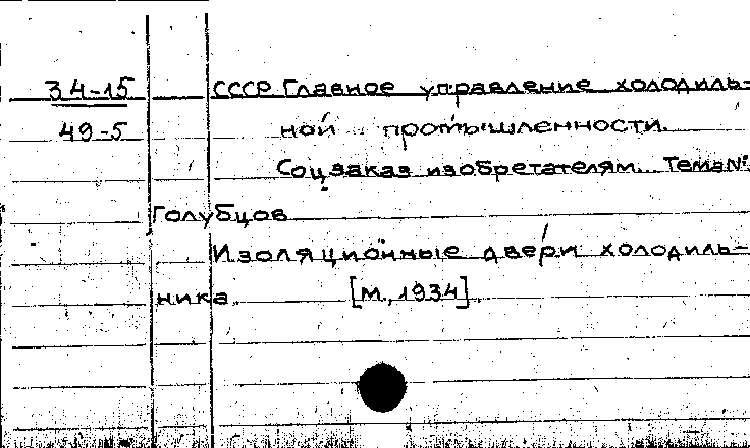 34-15 СССР Главное управление холодиль-
49-5 ной промышленности.
Соцзаказ изобретателям... Тема №
Голубцов
Изоляционные двери холодиль-
ника. [М., 1934].